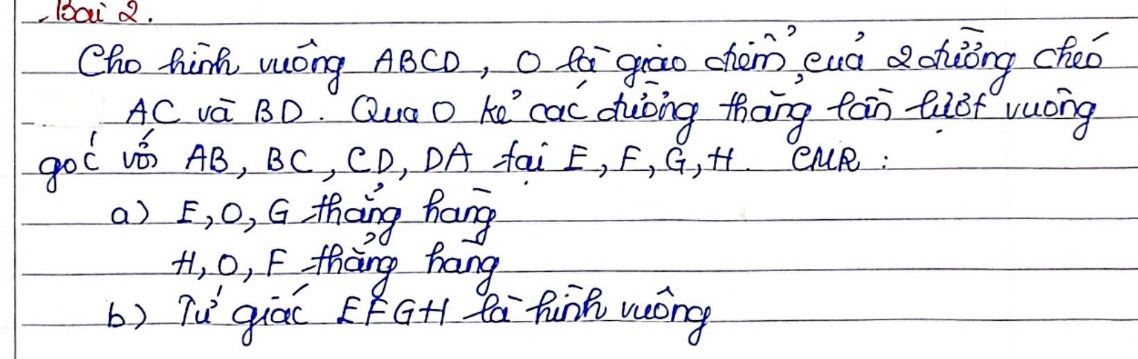 Bài 2.
Cho hình vuông ABCD, O là giao điểm của 2 đường chéo
AC và BD. Qua O kẻ các đường thẳng lần lượt vuông
góc với AB, BC, CD, DA tại E, F, G, H. CMR:
a) E, O, G thẳng hàng
H, O, F thẳng hàng
b) Tứ giác EFGH là hình vuông